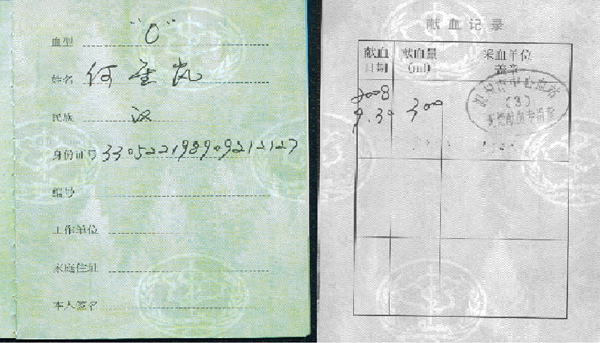 血型 "O"
姓名 何 凯
民族 汉
身份证号 330522198909212127
编号
工作单位
家庭住址
本人签名
献血记录
献血日期
献血量(ml)
采血单位盖章
2008
9.30
300
中心血站
(3)